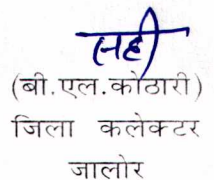 सही
(बी.एल.कोठारी)
जिला कलेक्टर
जालोर